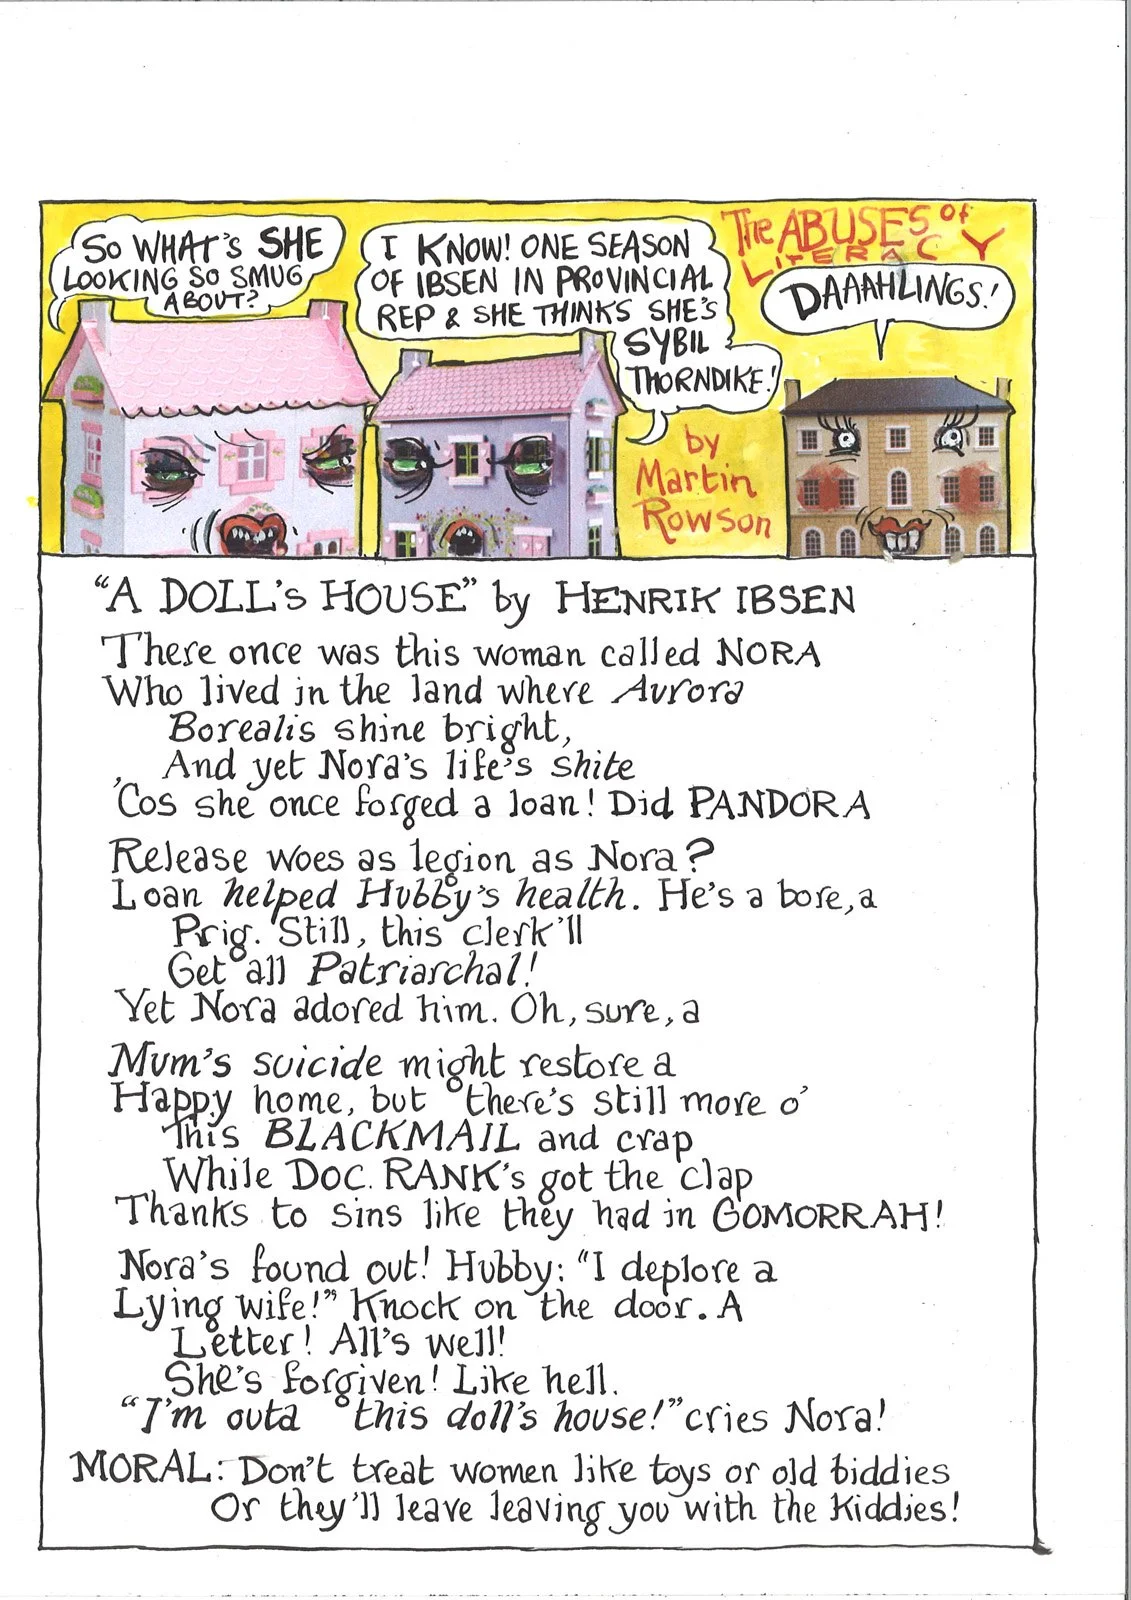 So WHAT'S SHE
LOOKING SO SMUG
ABOUT?
I KNOW! ONE SEASON
OF IBSEN IN PROVINCIAL
REP & SHE THINKS SHE'S
SYBIL
THORNDIKE!
The ABUSES of
LITERACY
DAAAHLINGS!
by
Martin
Rowson
"A DOLL'S HOUSE" by HENRIK IBSEN
There once was this woman called NORA
Who lived in the land where Aurora
Borealis shine bright,
And yet Nora's life's shite
'Cos she once forged a loan! Did PANDORA
Release woes as legion as Nora?
Loan helped Hubby's health. He's a bore, a
Prig. Still, this clerk'll
Get all Patriarchal!
Yet Nora adored him. Oh, sure, a
Mum's suicide might restore a
Happy home, but there's still more o'
This BLACKMAIL and crap
While DOC. RANK's got the clap
Thanks to sins like they had in GOMORRAH!
Nora's found out! Hubby: "I deplore a
Lying wife!" Knock on the door. A
Letter! All's well!
She's forgiven! Like hell.
"I'm outa this doll's house!" cries Nora!
MORAL: Don't treat women like toys or old biddies
Or they'll leave leaving you with the kiddies!